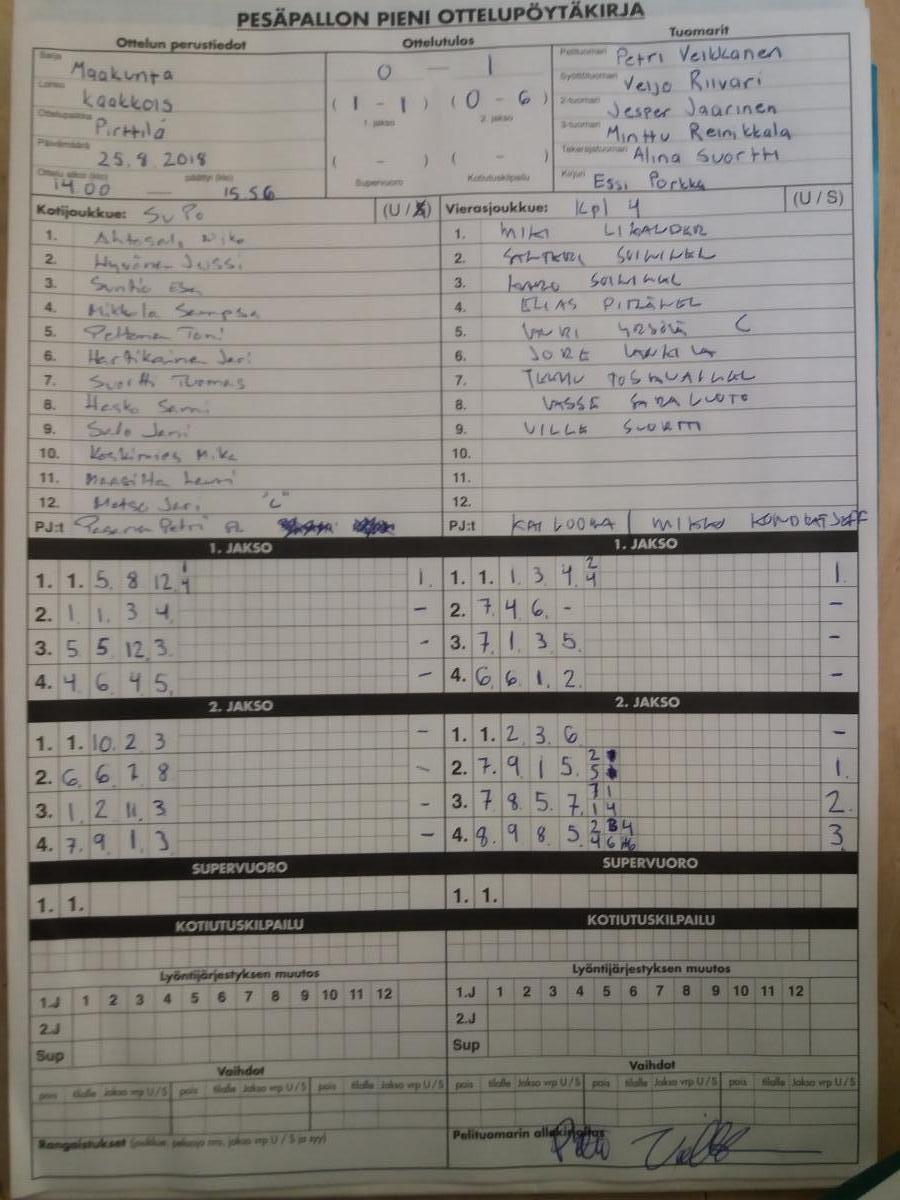 PESÄPALLON PIENI OTTELUPÖYTÄKIRJA
Ottelun perustiedot
Sarja Maakunta
Lohko Kaakkois
Ottelupaikka Pirttilä
Päivämäärä 25.8.2018
Ottelu alkoi (klo) 14.00 — päättyi (klo) 15.56
Ottelutulos
0 — 1
(1 - 1) (0 - 6)
1. jakso 2. jakso
( - ) ( - )
Supervuoro Kotiutuskilpailu
Tuomarit
Pelituomari Petri Veikkanen
Syöttötuomari Veijo Riivari
2-tuomari Jesper Jaarinen
3-tuomari Minttu Reinikkala
Takarajatuomari Alina Suortti
Kirjuri Essi Porkka
Kotijoukkue: SuPo (U / S)
1. Niko
2. Hyvönen Jussi
3. Suntio Esa
4. Mikkola Sampsa
5. Peltonen Toni
6. Hartikainen Jari
7. Suortti Tuomas
8. Hasko Sami
9. Salo Jani
10. Koskimies Mika
11. Lauri
12. Metso Jari "C"
PJ:t Petri
Vierasjoukkue: Kpl 4 (U / S)
1. MIKI LIKANDER
2. SANTERI SOININEN
3. SOININEN
4. ELIAS PITKÄNEN
5. C
6. JORE
7. TEEMU TOSSAVAINEN
8. LASSE SARALUOTO
9. VILLE SUORTTI
10.
11.
12.
PJ:t KAI LOORA / MIKKO KONDRATJEFF
1. JAKSO
1. 1. 5. 8 12. 1 4 1.
2. 1 1. 3 4 -
3. 5 5 12. 3. -
4. 4 6 4 5. -
2. JAKSO
1. 1. 10. 2 3 -
2. 6. 6 7 8 -
3. 1. 2 11. 3 -
4. 7. 9. 1. 3 -
SUPERVUORO
1. 1.
KOTIUTUSKILPAILU
Lyöntijärjestyksen muutos
1.J 1 2 3 4 5 6 7 8 9 10 11 12
2.J
Sup
Vaihdot
pois tilalle Jakso vrp U / S pois tilalle Jakso vrp U / S pois tilalle Jakso vrp U / S
Rangaistukset (joukkue, pelaaja nro, jakso vrp U / S ja syy)
1. JAKSO
1. 1. 1. 3 4. 2 4 1.
2. 7. 4 6. - -
3. 7. 1. 3 5. -
4. 6. 6 1. 2. -
2. JAKSO
1. 1. 2. 3 6. -
2. 7. 9 1 5. 2 5 1.
3. 7 8 5. 7. 7 1 1 4 2.
4. 8. 9 8 5. 2 3 4 4 6 3.
SUPERVUORO
1. 1.
KOTIUTUSKILPAILU
Lyöntijärjestyksen muutos
1.J 1 2 3 4 5 6 7 8 9 10 11 12
2.J
Sup
Vaihdot
pois tilalle Jakso vrp U / S pois tilalle Jakso vrp U / S pois tilalle Jakso vrp U / S
Pelituomarin allekirjoitus